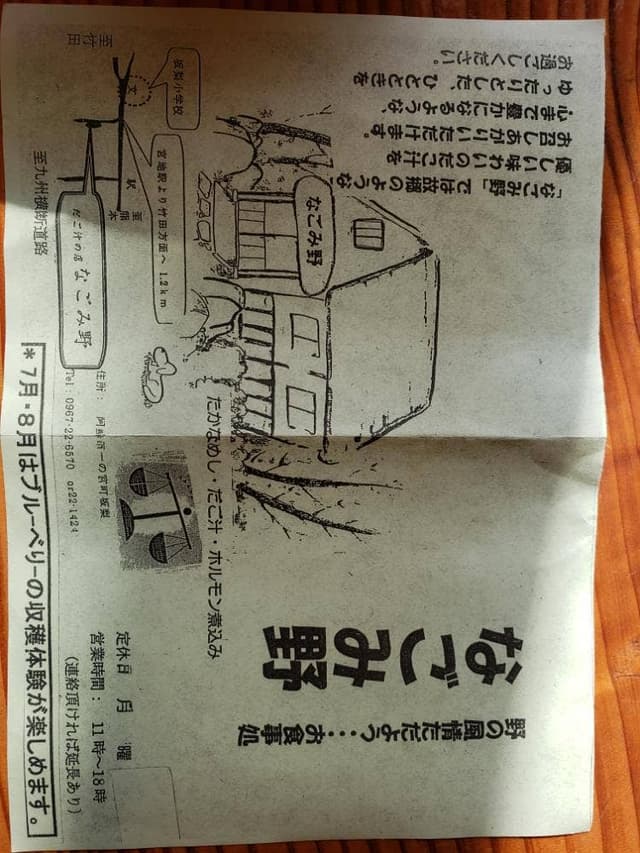 野の風情ただよう・・・お食事処
なごみ野
「なごみ野」では故郷のような
優しい味わいのだご汁を
お召しあがりいただけます。
心まで豊かになるような、
ゆったりとした、ひとときを
お過ごしください。
なごみ野
たかなめし・だご汁・ホルモン煮込み
坂梨小学校
文
宮地駅より竹田方面へ 1.2km
至竹田
至熊本
駅
至九州横断道路
だご汁の店 なごみ野
住所： 阿蘇郡一の宮町坂梨
Tel：0967-22-6570 or22-1424
定休日 月 曜
営業時間： 11時～18時
（連絡頂ければ延長あり）
＊7月・8月はブルーベリーの収穫体験が楽しめます。